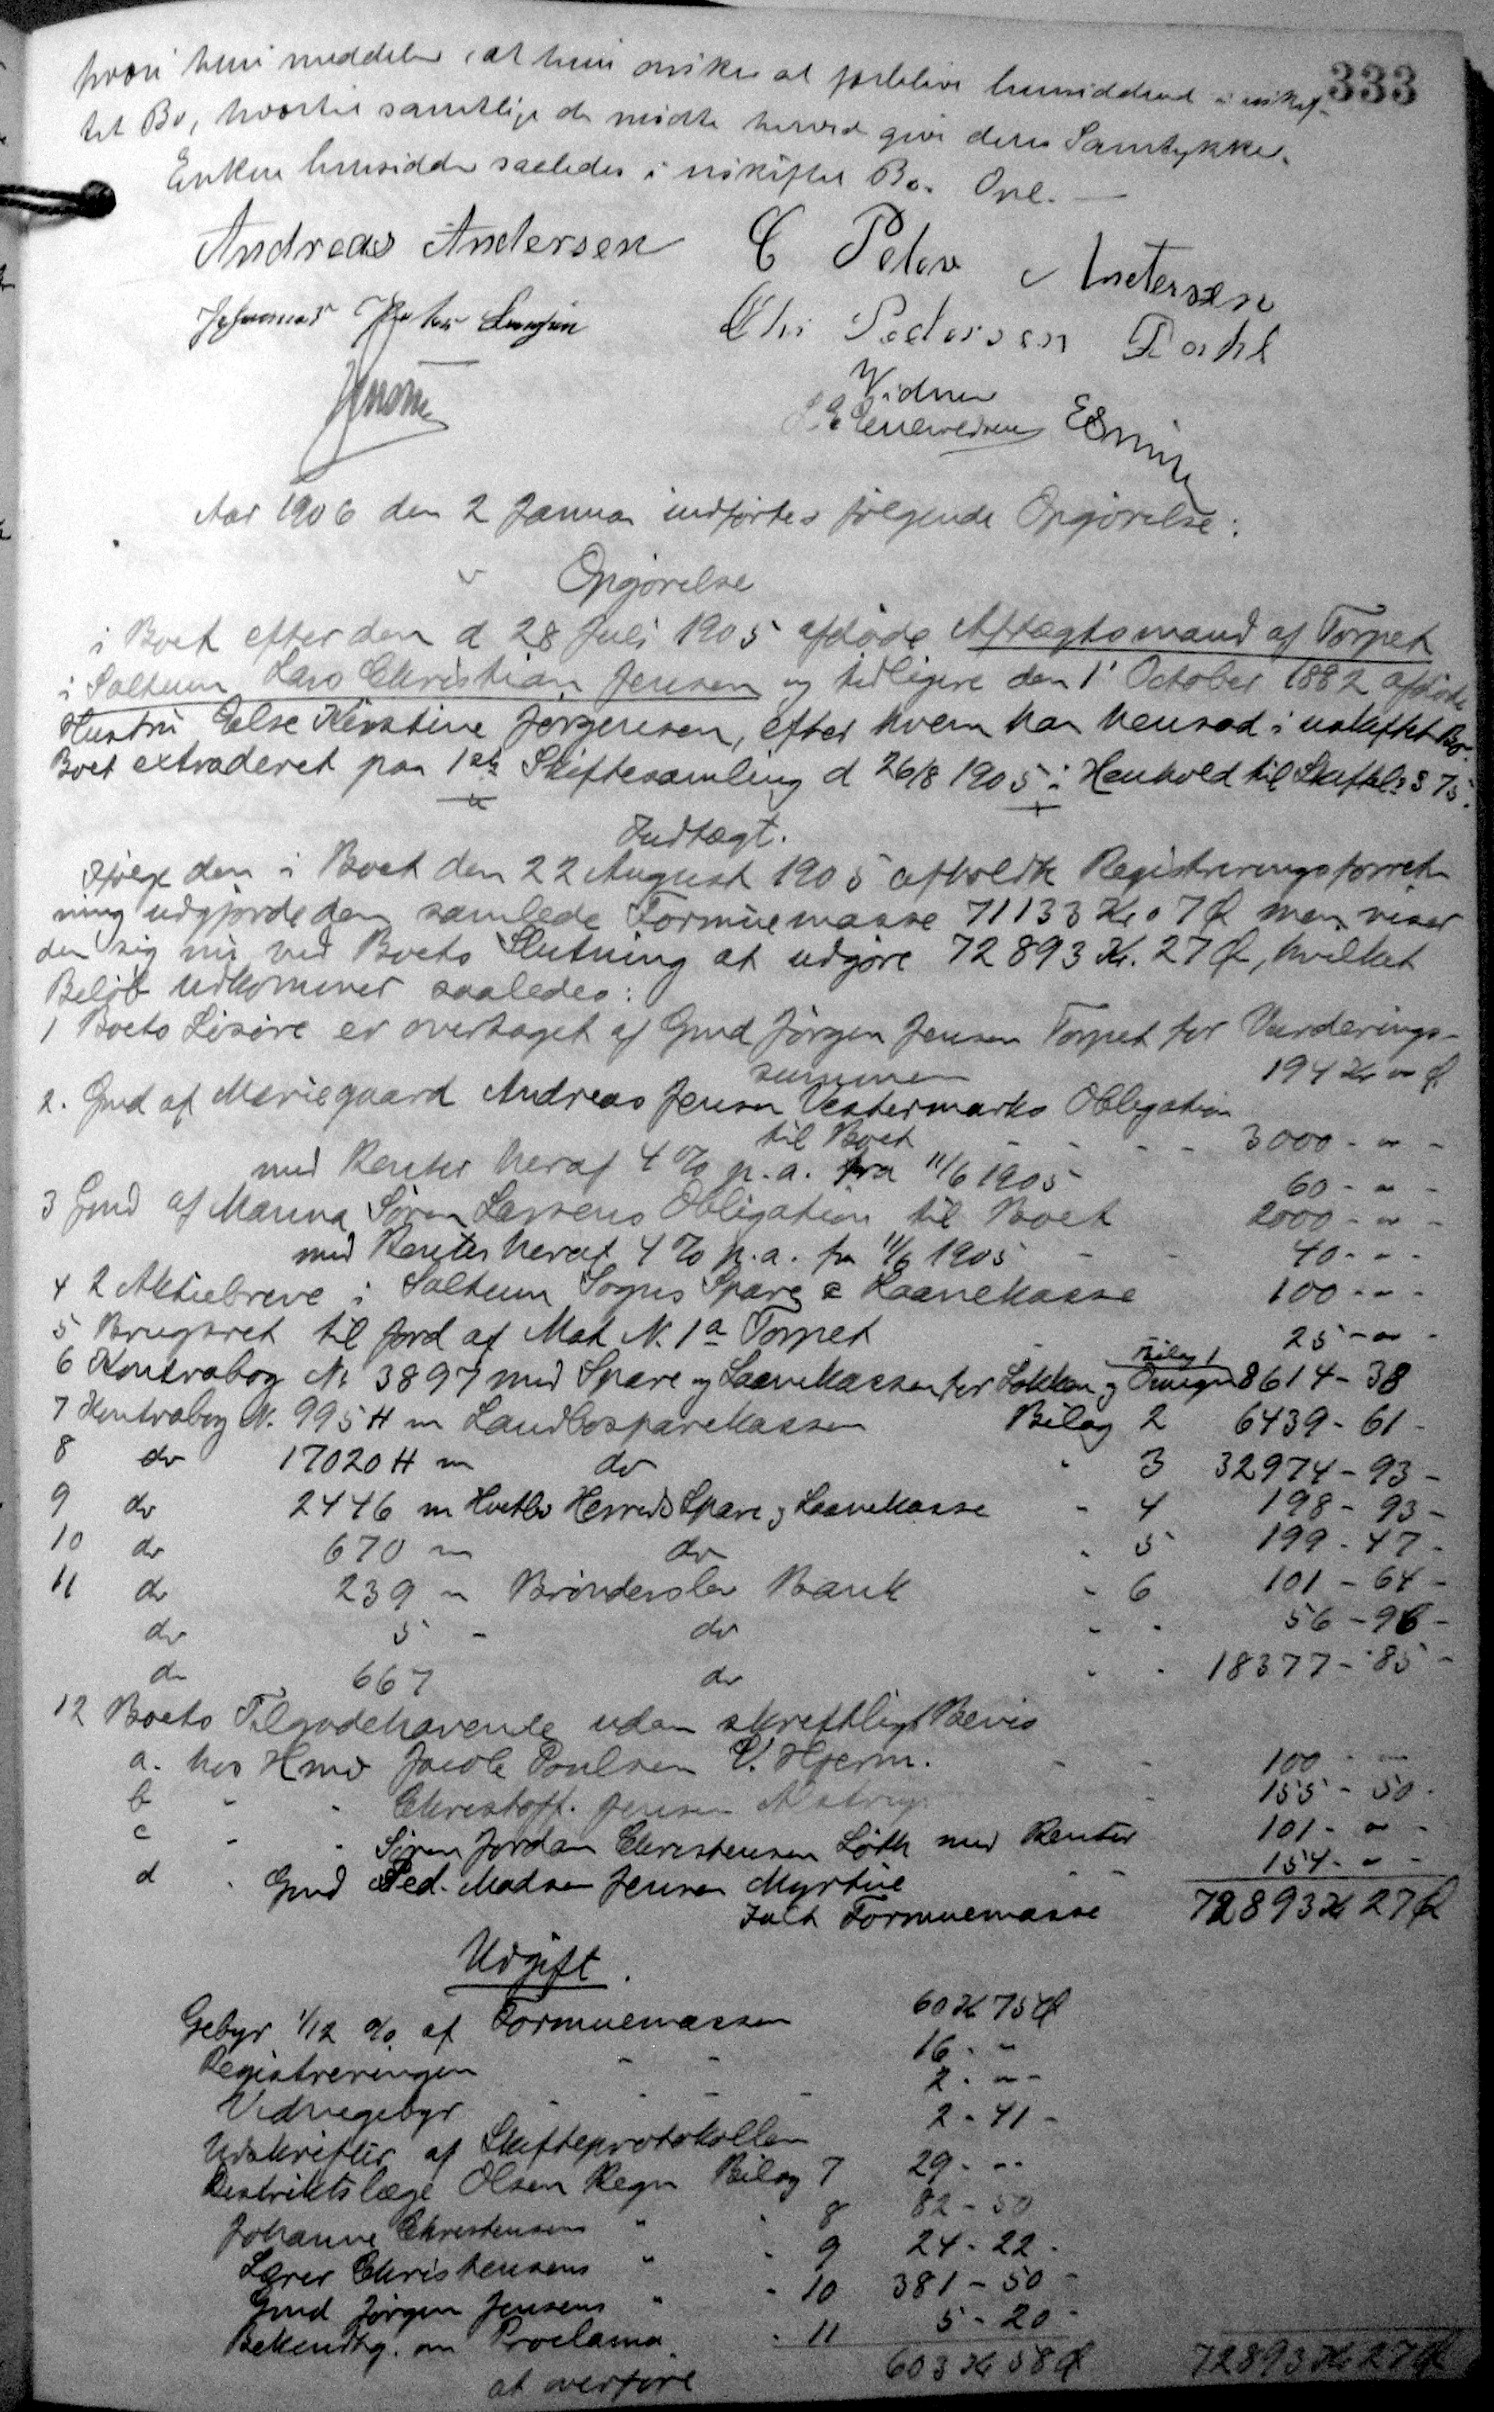 333
hvori hun meddeler, at hun ønsker at forblive hensiddende i uskif-
tet Bo, hvortil samtlige de mødte herved give deres Samtykke.
Enken hensidder saaledes i uskiftet Bo. Opl. —
Andreas Andersen C Peter Andersen
Johannes Peter Chr Pedersen Dahl
Vidner
Aar 1906 den 2 Januar indførtes følgende Opgørelse:
Opgjørelse
i Boet efter den d 28 Juli 1905 afdøde Aftægtsmand af Torpet
i Saltum Lars Christian Jensen og tidligere den 1' October 1882 afdøde
Hustru Else Kirstine Jørgensen, efter hvem han hensad i uskiftet Bo.
Boet extraderet paa 1ste Skiftesamling d 26/8 1905 i Henhold til Skiftel. § 75.
Indtægt.
Ifølge den i Boet den 22 August 1905 afholdte Registreringsforret-
ning udgjorde den samlede Formuemasse 71133 Kr 07 Ø men viser
den sig nu ved Boets Slutning at udgøre 72893 Kr. 27 Ø, hvilket
Beløb udkommer saaledes:
1 Boets Løsøre er overtaget af Gmd Jørgen Jensen Torpet for Vurderings-
summen 194 Kr " Ø
2. Gmd af Mariegaard Andreas Jensen Vestermarks Obligation
til Boet - - - - 3000 - " -
med Renter heraf 4 % p.a. fra 11/6 1905 60 - " -
3 Gmd af Manna Søren Larsens Obligation til Boet 2000 - " -
med Renter heraf 4 % p.a. fra 11/6 1905 - - 40 - " -
4 2 Aktiebreve i Saltum Sogns Spare & Laanekasse 100 - " -
5 Brugsret til Jord af Mat N. 1a Torpet - 25 - " -
6 Kontrabog Nr 3897 med Spare og Laanekassen for Løkken og Omegn Bilag 1 8614 - 38
7 Kontrabog N. 995 H m Landbosparekassen Bilag 2 6439 - 61 -
8 do 17020 H m do " 3 32974 - 93 -
9 do 2446 m Hvetbo Herreds Spare og Laanekasse - 4 198 - 93 -
10 do 670 m do - 5 199 - 47 -
11 do 239 m Brønderslev Bank - 6 101 - 64 -
do 5 - do - - 56 - 96 -
do 667 do - - 18377 - 85 -
12 Boets Tilgodehavende uden skriftligt Bevis
a. hos Hmd Jacob Poulsen V. Hjerm. - - 100 - "
b - - Christoff. Jensen Alstrup - 155 - 50 -
c - - Søren Jordan Christensen Løth med Renter 101 - " -
d - Gmd Ped. Madsen Jensen Myrtue - - 154 - " -
Ialt Formuemasse 72893 Kr 27 Ø
Udgift.
Gebyr 1/12 % af Formuemassen 60 Kr 75 Ø
Registreringen - - 16 - "
Vidnegebyr - - - - 2 - " -
Udskrifter af Skifteprotokollen 2 - 41 -
Distriktslæge Olsen Regn Bilag 7 29 - " -
Johanne Christensens " - 8 82 - 50
Lærer Christensens " - 9 24 - 22 -
Gmd Jørgen Jensens " - 10 381 - 50 -
Bekendtg. om Proclama - 11 5 - 20 -
at overføre 603 Kr 58 Ø 72893 Kr 27 Ø